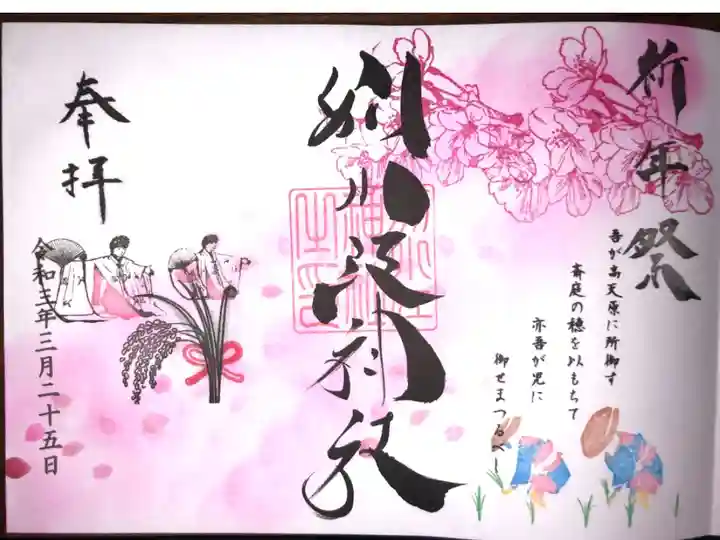 祈年祭
吾が高天原に所御す
斎庭の穂を以もちて
亦吾が児に
御せまつるべし
別小江神社
奉拝
令和三年三月二十五日